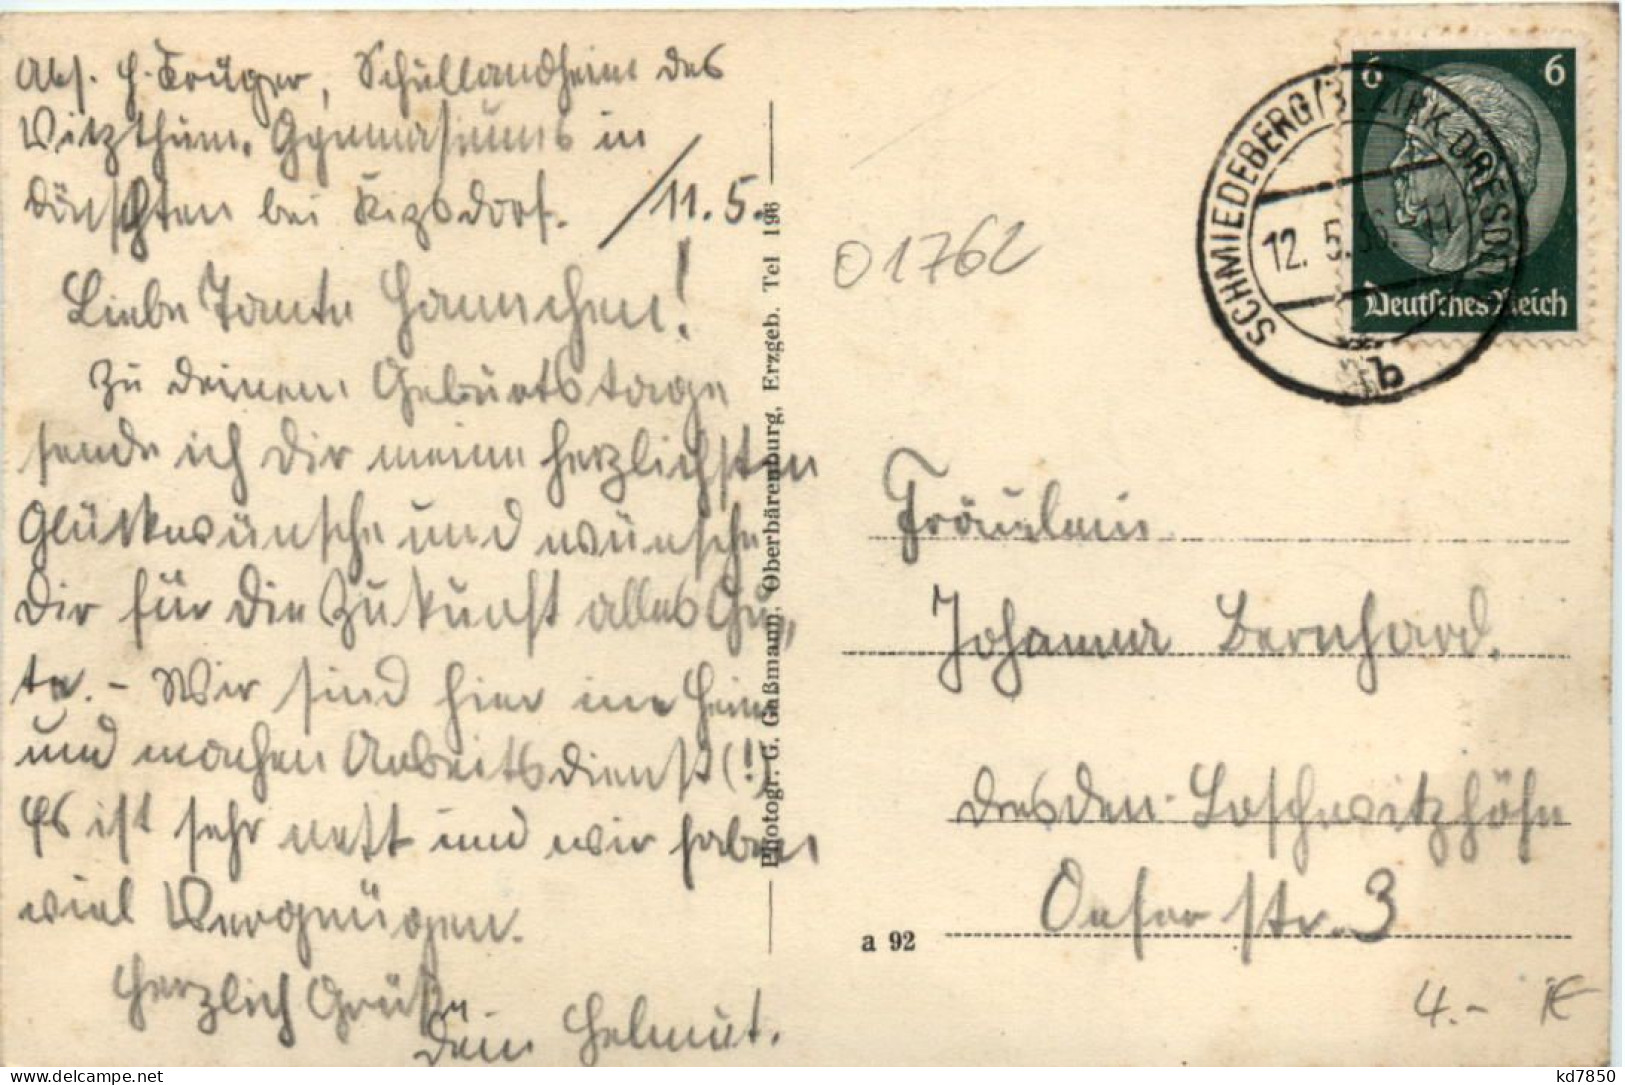 Abs. H. Krüger, Schullandheim des
Vitzthum. Gymnasiums in
bei Kipsdorf. / 11.5.
Liebe Tante Hannchen!
Zu deinem Geburtstage
sende ich Dir meine herzlichsten
Glückwünsche und wünsche
Dir für die Zukunft alles Gu„
te. - Wir sind hier im Heim
und machen Arbeitsdienst (!)
Es ist sehr nett und wir haben
viel Vergnügen.
Herzlich Grüße
Dein Helmut.
Photogr. G. Gaßmann, Oberbärenburg, Erzgeb. Tel 196
01762
6 6
Deutsches Reich
SCHMIEDEBERG (BEZIRK DRESDEN)
12.5.36.
b
Fräulein
Johanna Bernhard.
Dresden-Loschwitzhöhe
str. 3
a 92
4.- K
kd7850